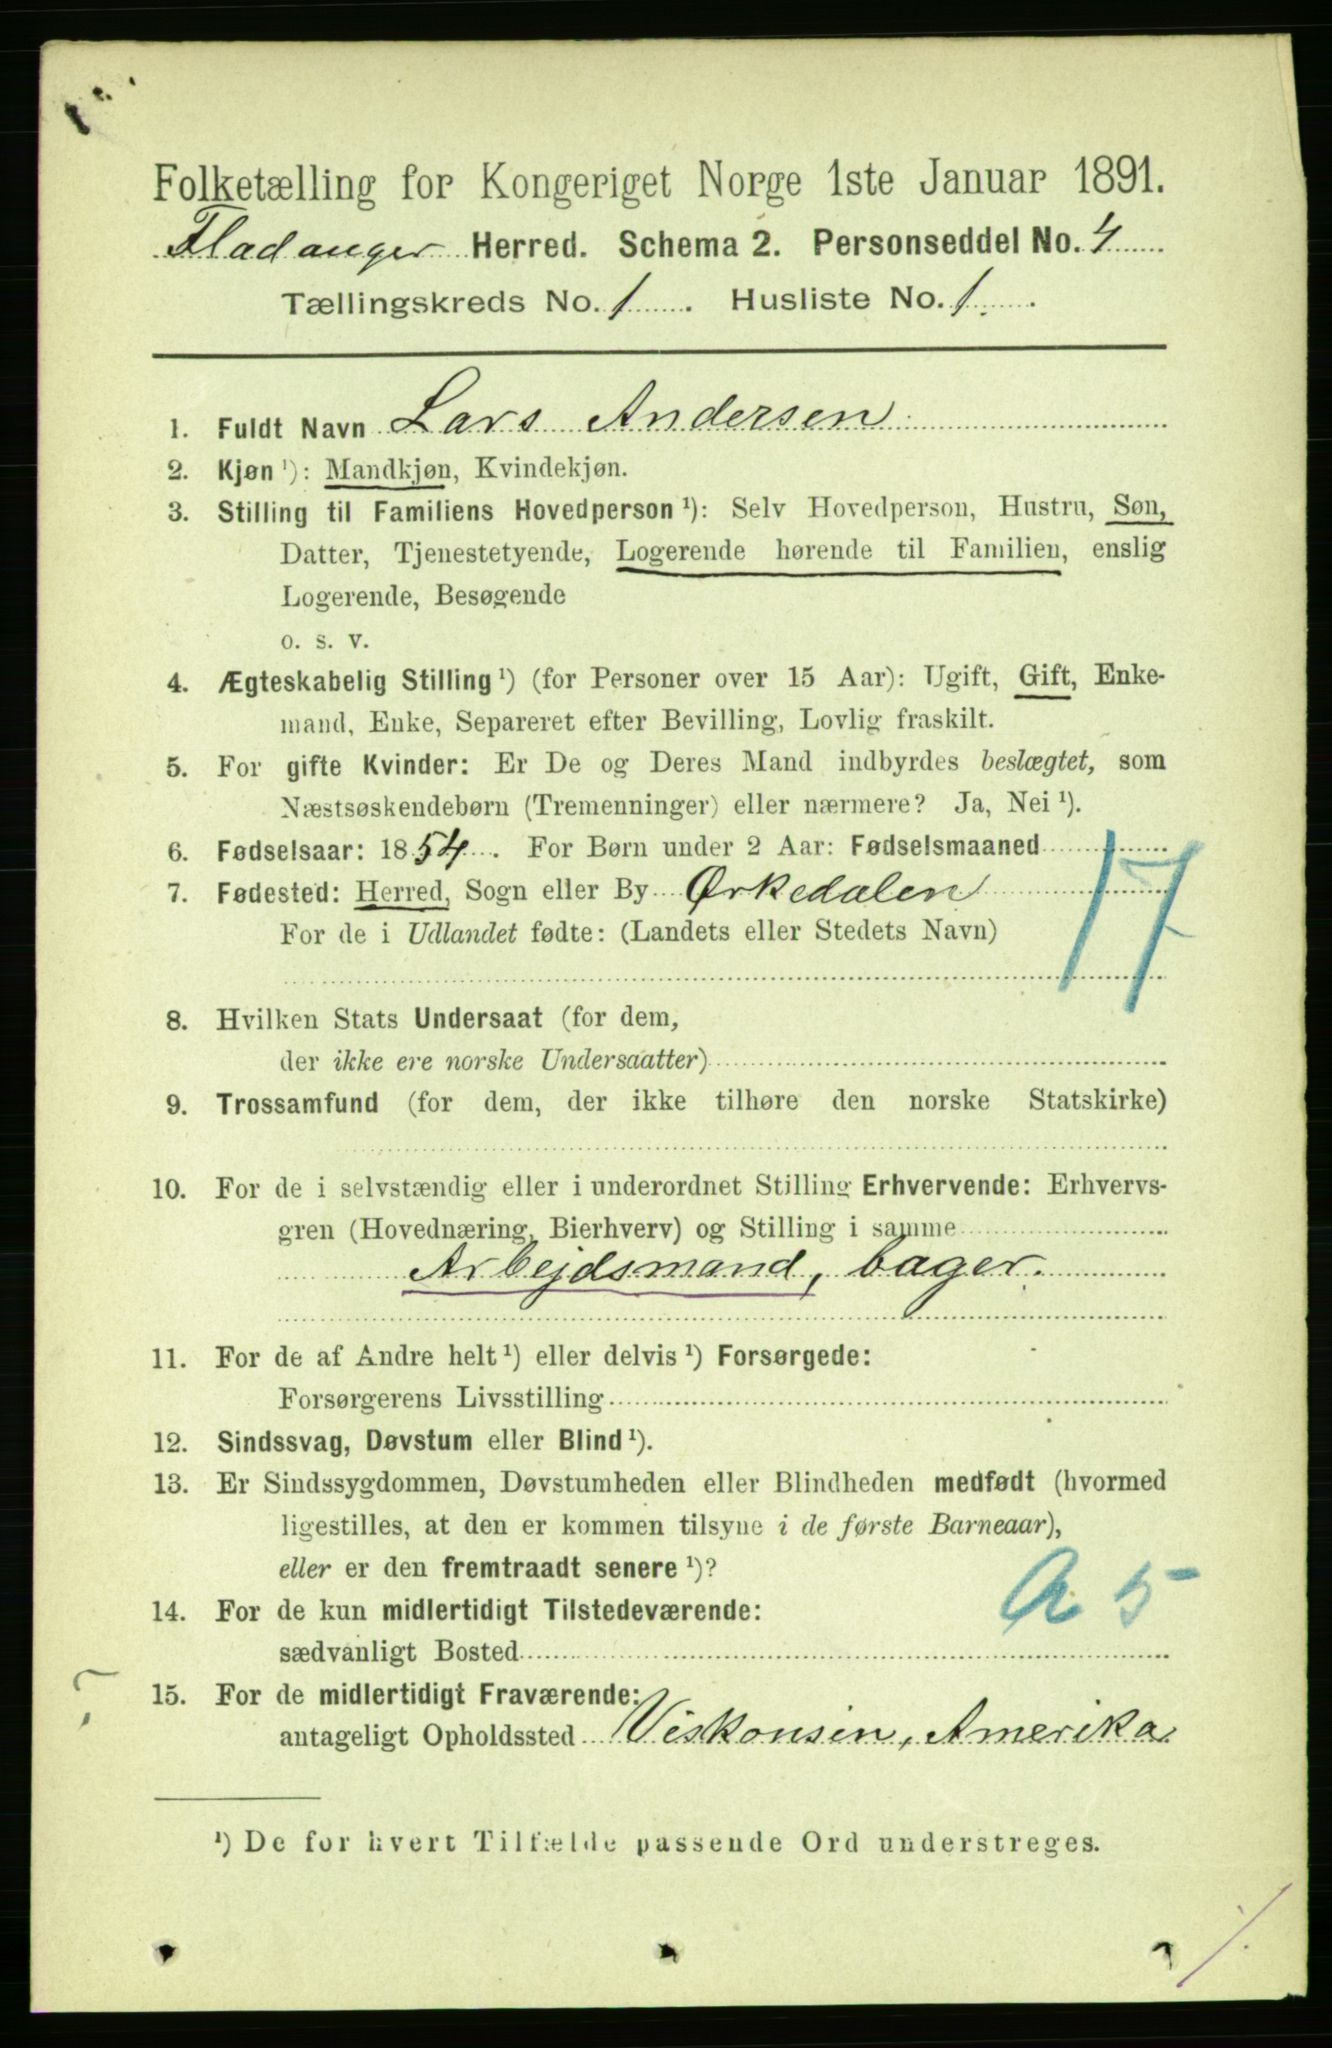 Folketælling for Kongeriget Norge 1ste Januar 1891.
Fladanger Herred. Schema 2. Personseddel No. 4
Tællingskreds No. 1. Husliste No. 1.
1. Fuldt Navn Lars Andersen
2. Kjøn ¹): Mandkjøn, Kvindekjøn.
3. Stilling til Familiens Hovedperson ¹): Selv Hovedperson, Hustru, Søn,
Datter, Tjenestetyende, Logerende hørende til Familien, enslig
Logerende, Besøgende
o. s. v.
4. Ægteskabelig Stilling ¹) (for Personer over 15 Aar): Ugift, Gift, Enke-
mand, Enke, Separeret efter Bevilling, Lovlig fraskilt.
5. For gifte Kvinder: Er De og Deres Mand indbyrdes beslægtet, som
Næstsøskendebørn (Tremenninger) eller nærmere? Ja, Nei ¹).
6. Fødselsaar: 1854. For Børn under 2 Aar: Fødselsmaaned
7. Fødested: Herred, Sogn eller By Ørkedalen
17
For de i Udlandet fødte: (Landets eller Stedets Navn)
8. Hvilken Stats Undersaat (for dem,
der ikke ere norske Undersaatter)
9. Trossamfund (for dem, der ikke tilhøre den norske Statskirke)
10. For de i selvstændig eller i underordnet Stilling Erhvervende: Erhvervs-
gren (Hovednæring, Bierhverv) og Stilling i samme
Arbejdsmand, bager.
11. For de af Andre helt ¹) eller delvis ¹) Forsørgede:
Forsørgerens Livsstilling
12. Sindssvag, Døvstum eller Blind ¹).
13. Er Sindssygdommen, Døvstumheden eller Blindheden medfødt (hvormed
ligestilles, at den er kommen tilsyne i de første Barneaar),
eller er den fremtraadt senere ¹)?
a 5
14. For de kun midlertidigt Tilstedeværende:
sædvanligt Bosted
15. For de midlertidigt Fraværende:
antageligt Opholdssted Viskonsin, Amerika
¹) De for hvert Tilfælde passende Ord understreges.